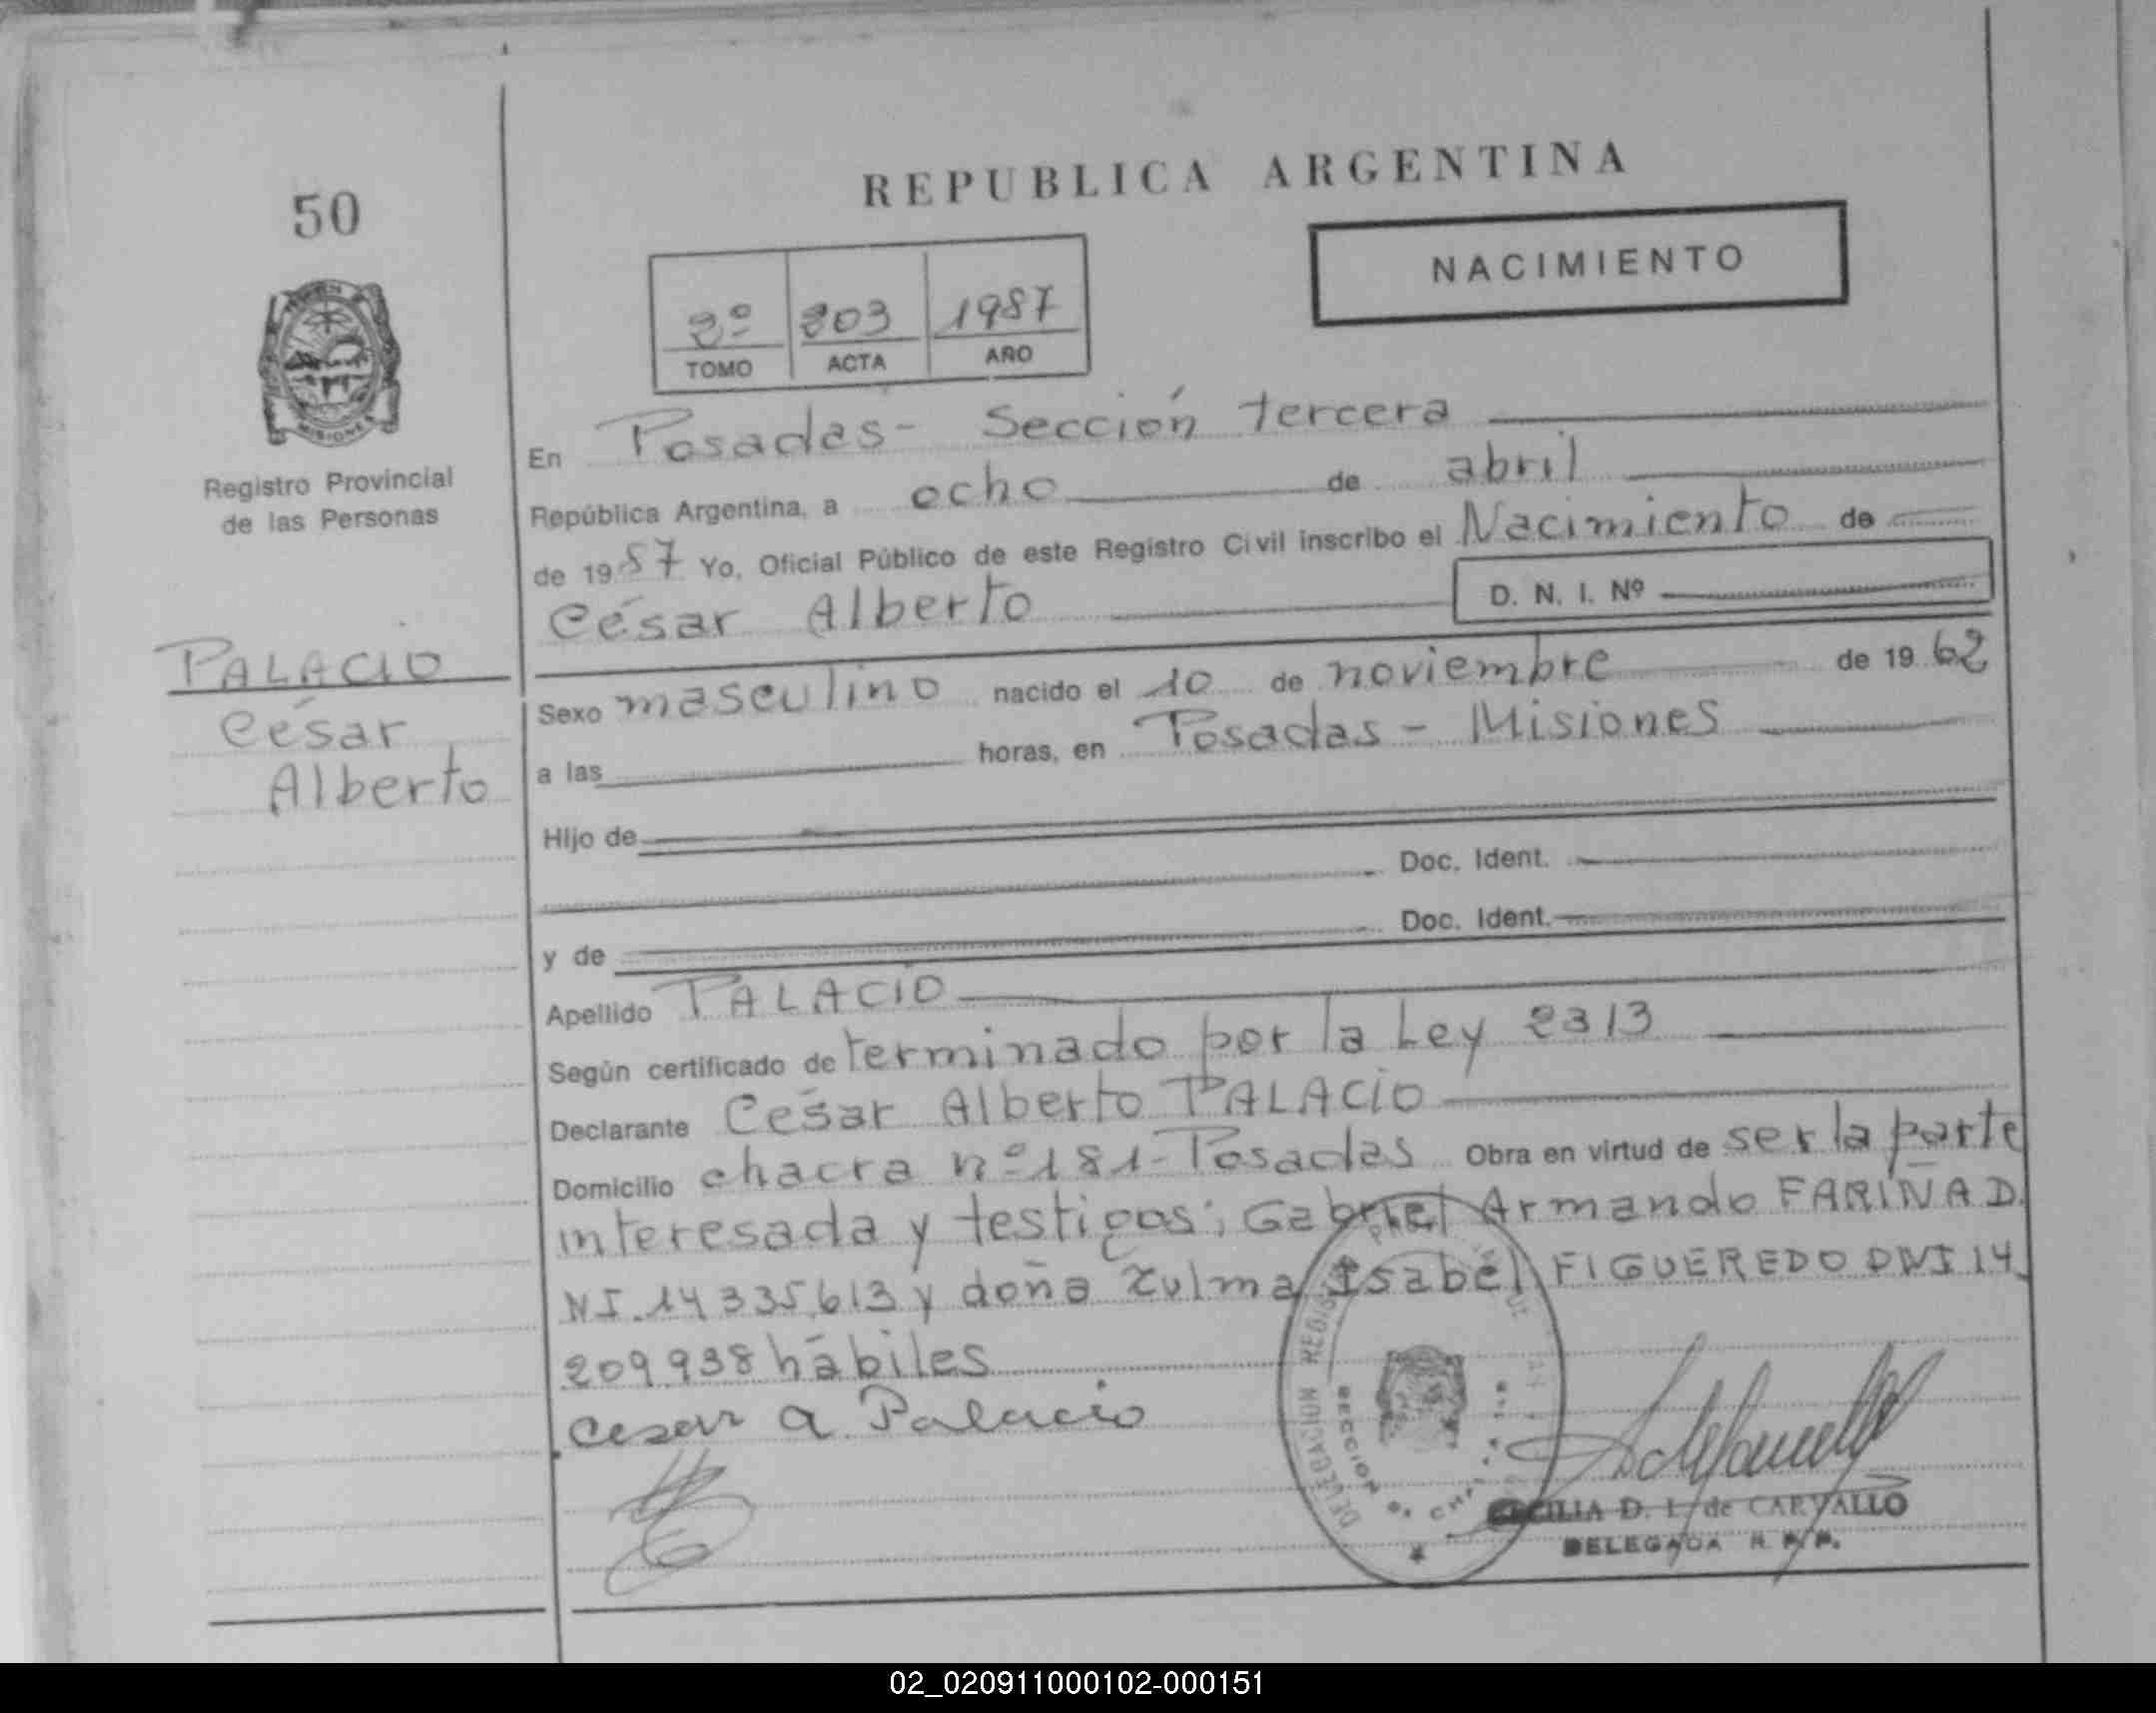 50
REPUBLICA ARGENTINA
NACIMIENTO
2º 203 1987
TOMO ACTA AÑO
MISIONES
Registro Provincial
de las Personas
En Posadas- Sección tercera
República Argentina, a ocho de abril
de 1987 Yo, Oficial Público de este Registro Civil inscribo el Nacimiento de
César Alberto D. N. I. Nº
PALACIO
César
Alberto
Sexo masculino nacido el 10 de noviembre de 1962
a las horas, en Posadas - Misiones
Hijo de
Doc. Ident.
y de Doc. Ident.
Apellido PALACIO
Según certificado determinado por la Ley 2313
Declarante César Alberto PALACIO
Domicilio chacra nº181-Posadas Obra en virtud de ser la parte
interesada y testigos; Gabriel Armando FARIÑA D.
NI.14335613 y doña Zulma Isabel FIGUEREDO DNI 14
209938 hábiles
Cesar a Palacio
DELEGACION
SECCION
CECILIA D. L. de CARVALLO
DELEGADA R. P. P.
02_020911000102-000151